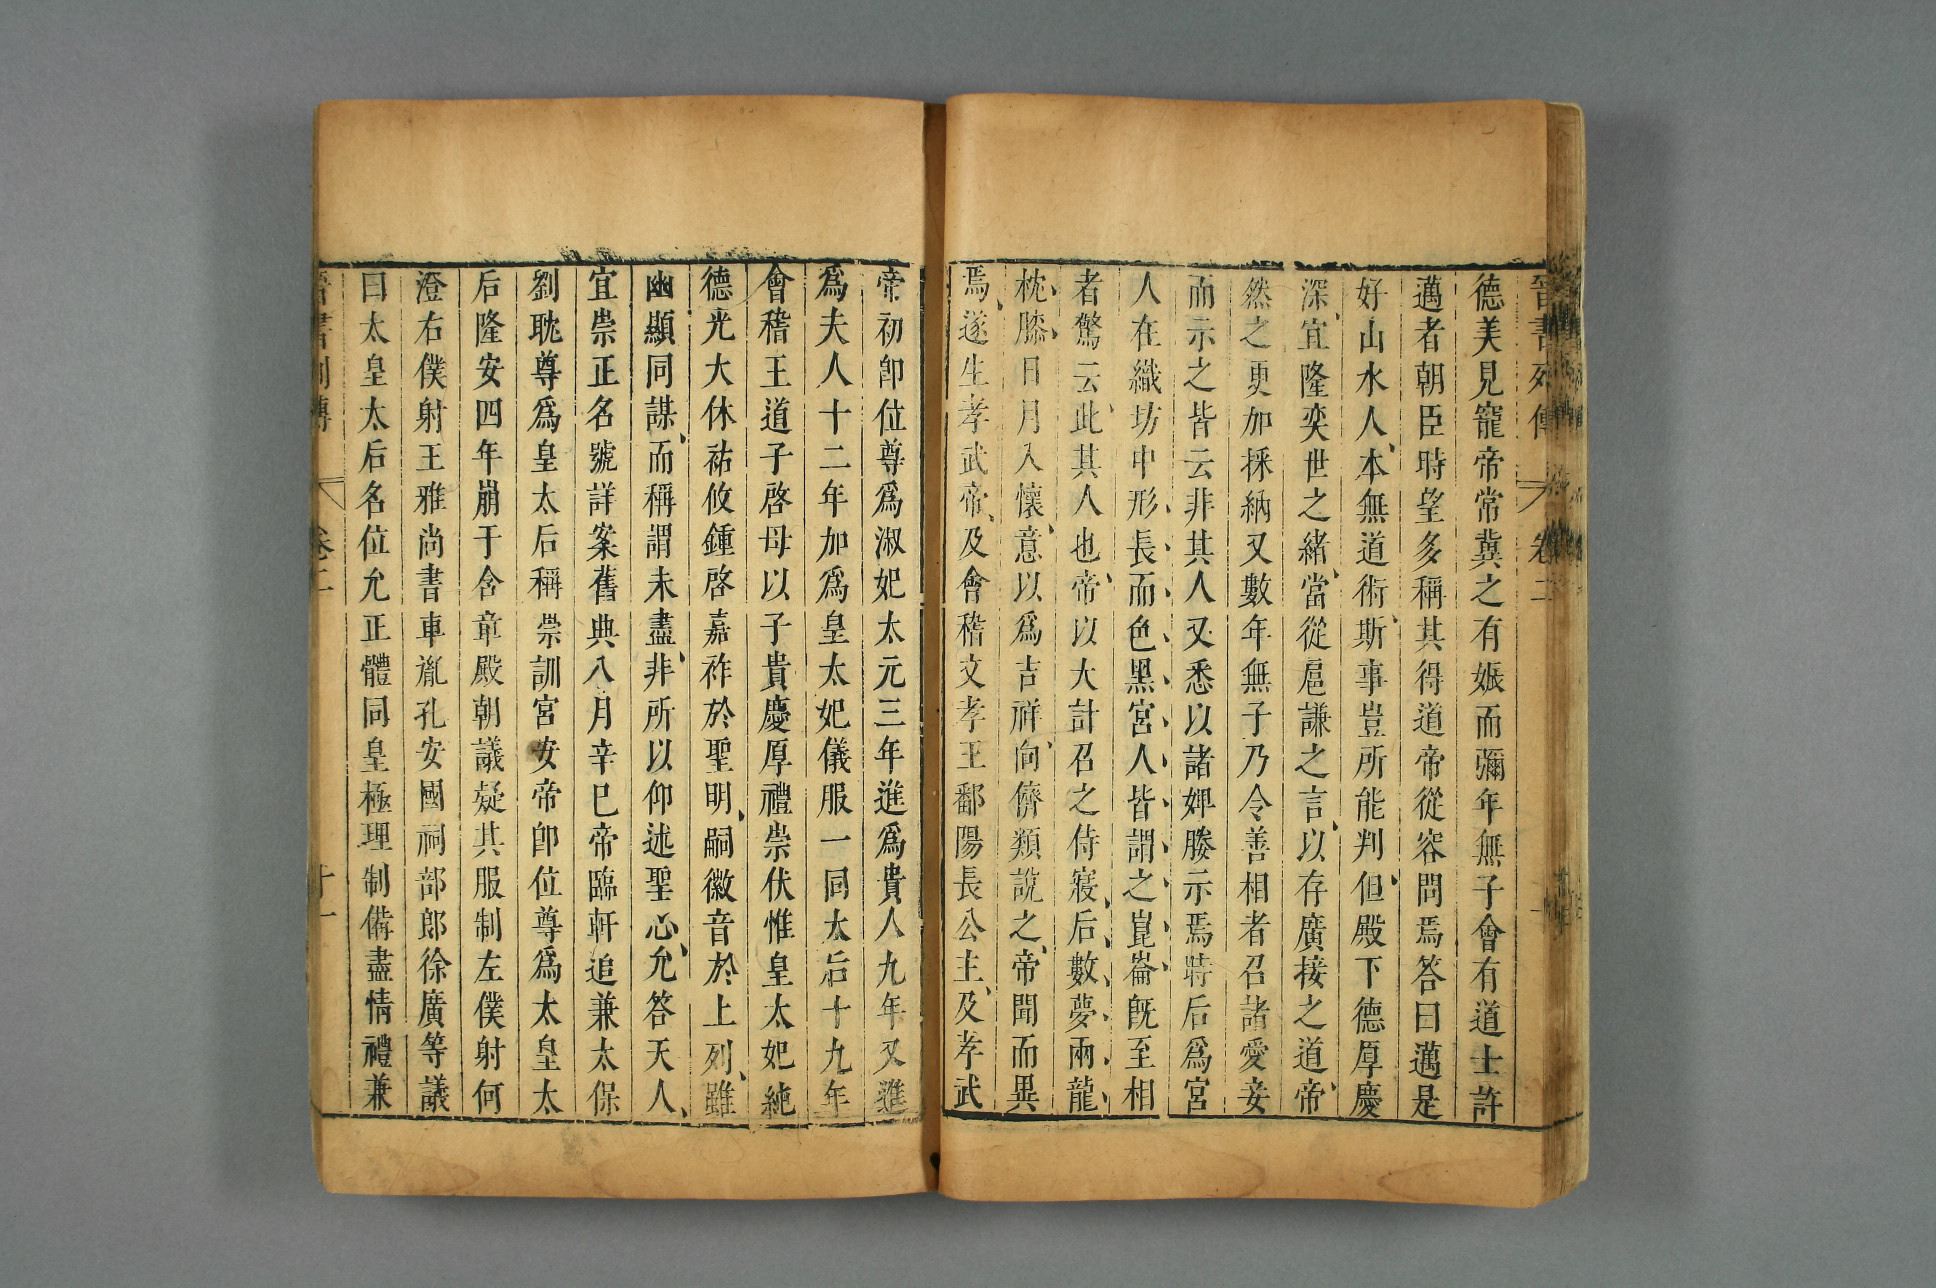 晉書列傳 卷二
德美見寵帝常冀之有娠而彌年無子會有道士許
邁者朝臣時望多稱其得道帝從容問焉答曰邁是
好山水人本無道術斯事豈所能判但殿下德厚慶
深宜隆奕世之緒當從扈謙之言以存廣接之道帝
然之更加採納又數年無子乃令善相者召諸愛妾
而示之皆云非其人又悉以諸婢媵示焉時后爲宮
人在織坊中形長而色黑宮人皆謂之崑崙旣至相
者驚云此其人也帝以大計召之侍寢后數夢兩龍
枕膝日月入懷意以爲吉祥向儕類說之帝聞而異
焉遂生孝武帝及會稽文孝王鄱陽長公主及孝武
帝初卽位尊爲淑妃太元三年進爲貴人九年又進
爲夫人十二年加爲皇太妃儀服一同太后十九年
會稽王道子啓母以子貴慶厚禮崇伏惟皇太妃純
德光大休祐攸鍾啓嘉祚於聖明嗣徽音於上列雖
幽顯同謀而稱謂未盡非所以仰述聖心允答天人
宜崇正名號詳案舊典八月辛巳帝臨軒追兼太保
劉耽尊爲皇太后稱崇訓宮安帝卽位尊爲太皇太
后隆安四年崩于含章殿朝議疑其服制左僕射何
澄右僕射王雅尚書車胤孔安國祠部郎徐廣等議
曰太皇太后名位允正體同皇極理制備盡情禮兼
晉書列傳 卷二 十一